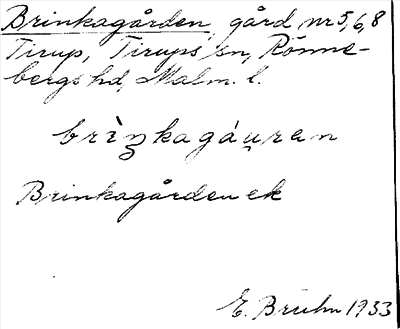 Brinkagården, gård nr 5, 6, 8
Tirup, Tirups sn, Rönne-
bergs hd, Malm. l.
brìŋkagáu̯ren
Brinkagården ek
E. Bruhn 1933